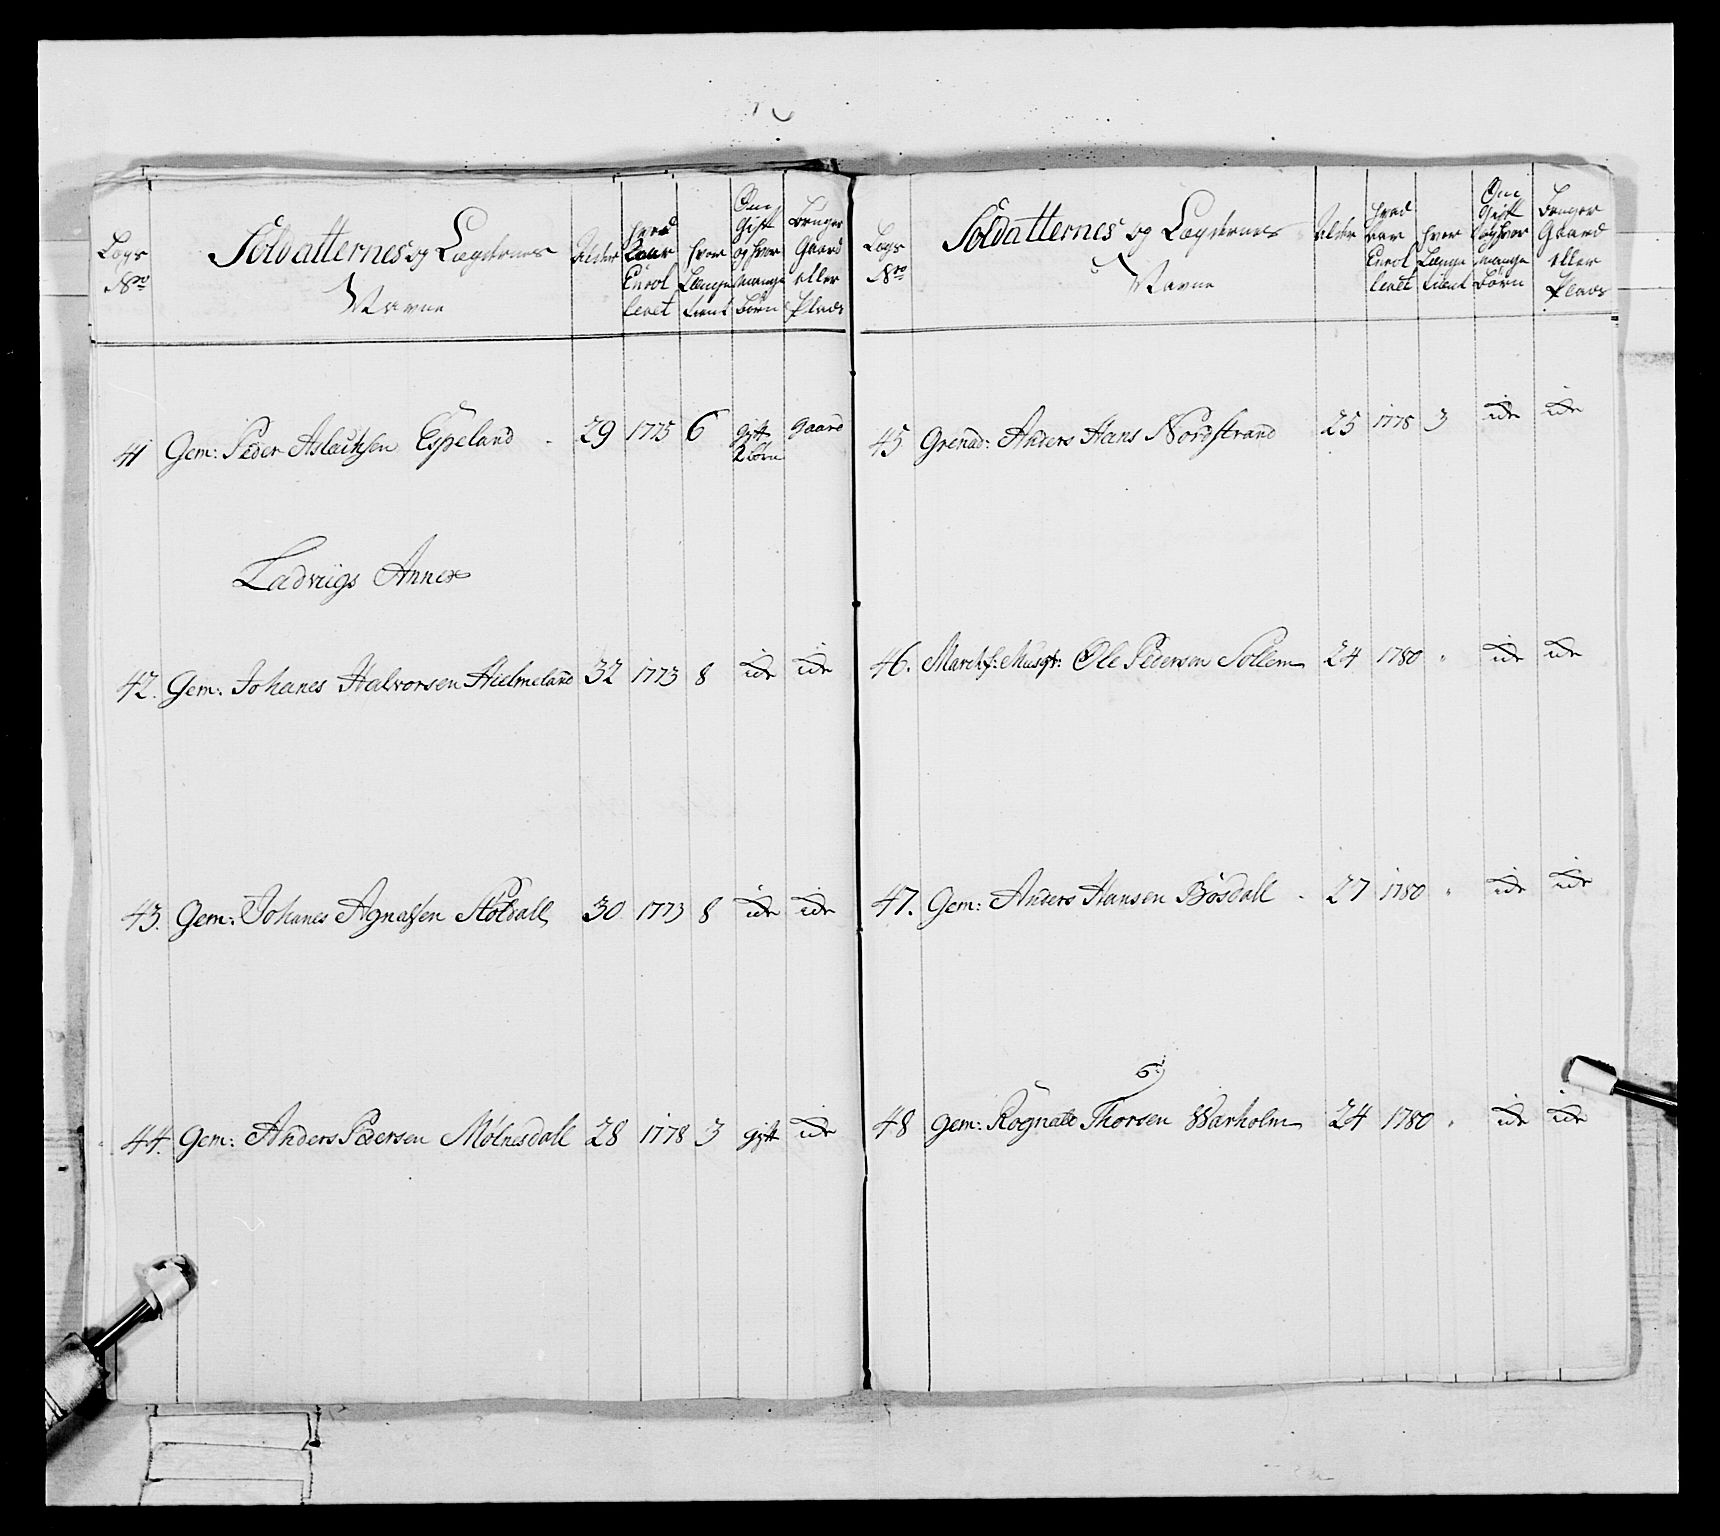 Lægs No
Soldatternes og Lægdernes Navne
Alder
hvad Aar Enrolleret
hvor Længe tient
Om Gift og hvor mange Børn
bruger Gaard eller Plads
41 Gem: Peder Aslachsen Espeland 29 1775 6 gift 2 børn Gaard
Ladviigs Annex
42. Gem: Johanes Halvorsen Hielmeland 32 1773 8 ide ide
43. Gem: Johanes Agnalsen 30 1773 8 ide ide
44. Gem: Anders Pedersen Mølnesdall 28 1778 3 gift ide
Lægs No
Soldatternes og Lægdernes Navne
Alder
hvad Aar Enrolleret
hvor Længe tient
Om Gift og hvor mange Børn
bruger Gaard eller Plads
45 Grenad: Anders Hans Nordstrand 25 1778 3 ide ide
46. Musqt: Ole Pedersen Sollem 24 1780 " ide ide
47. Gem: Anders Hansen Bosdall 27 1780 " ide ide
6
48 gem: Rognald Thorsen Warholm 24 1780 " ide ide